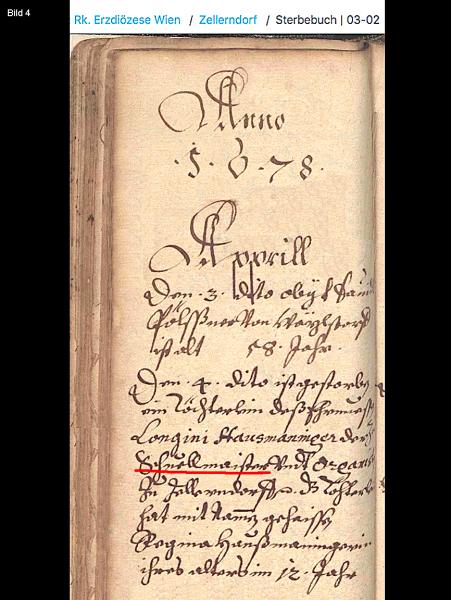 Bild 4
Rk. Erzdiözese Wien / Zellerndorf / Sterbebuch | 03-02
Anno
1678
Apprill
Den. 3. dito obyt
Von
ist alt 58. Jahr.
Den. 4. dito ist gestorben
ein Töchterlein deß
Longini Hausmaninger der
Schuellmaister Vnd Organis
Zu Zellerndorff. D. Töchterle
hat mit Namen gehaissen
Regina Haußmaningerin
ihres alters im 12. Jahr